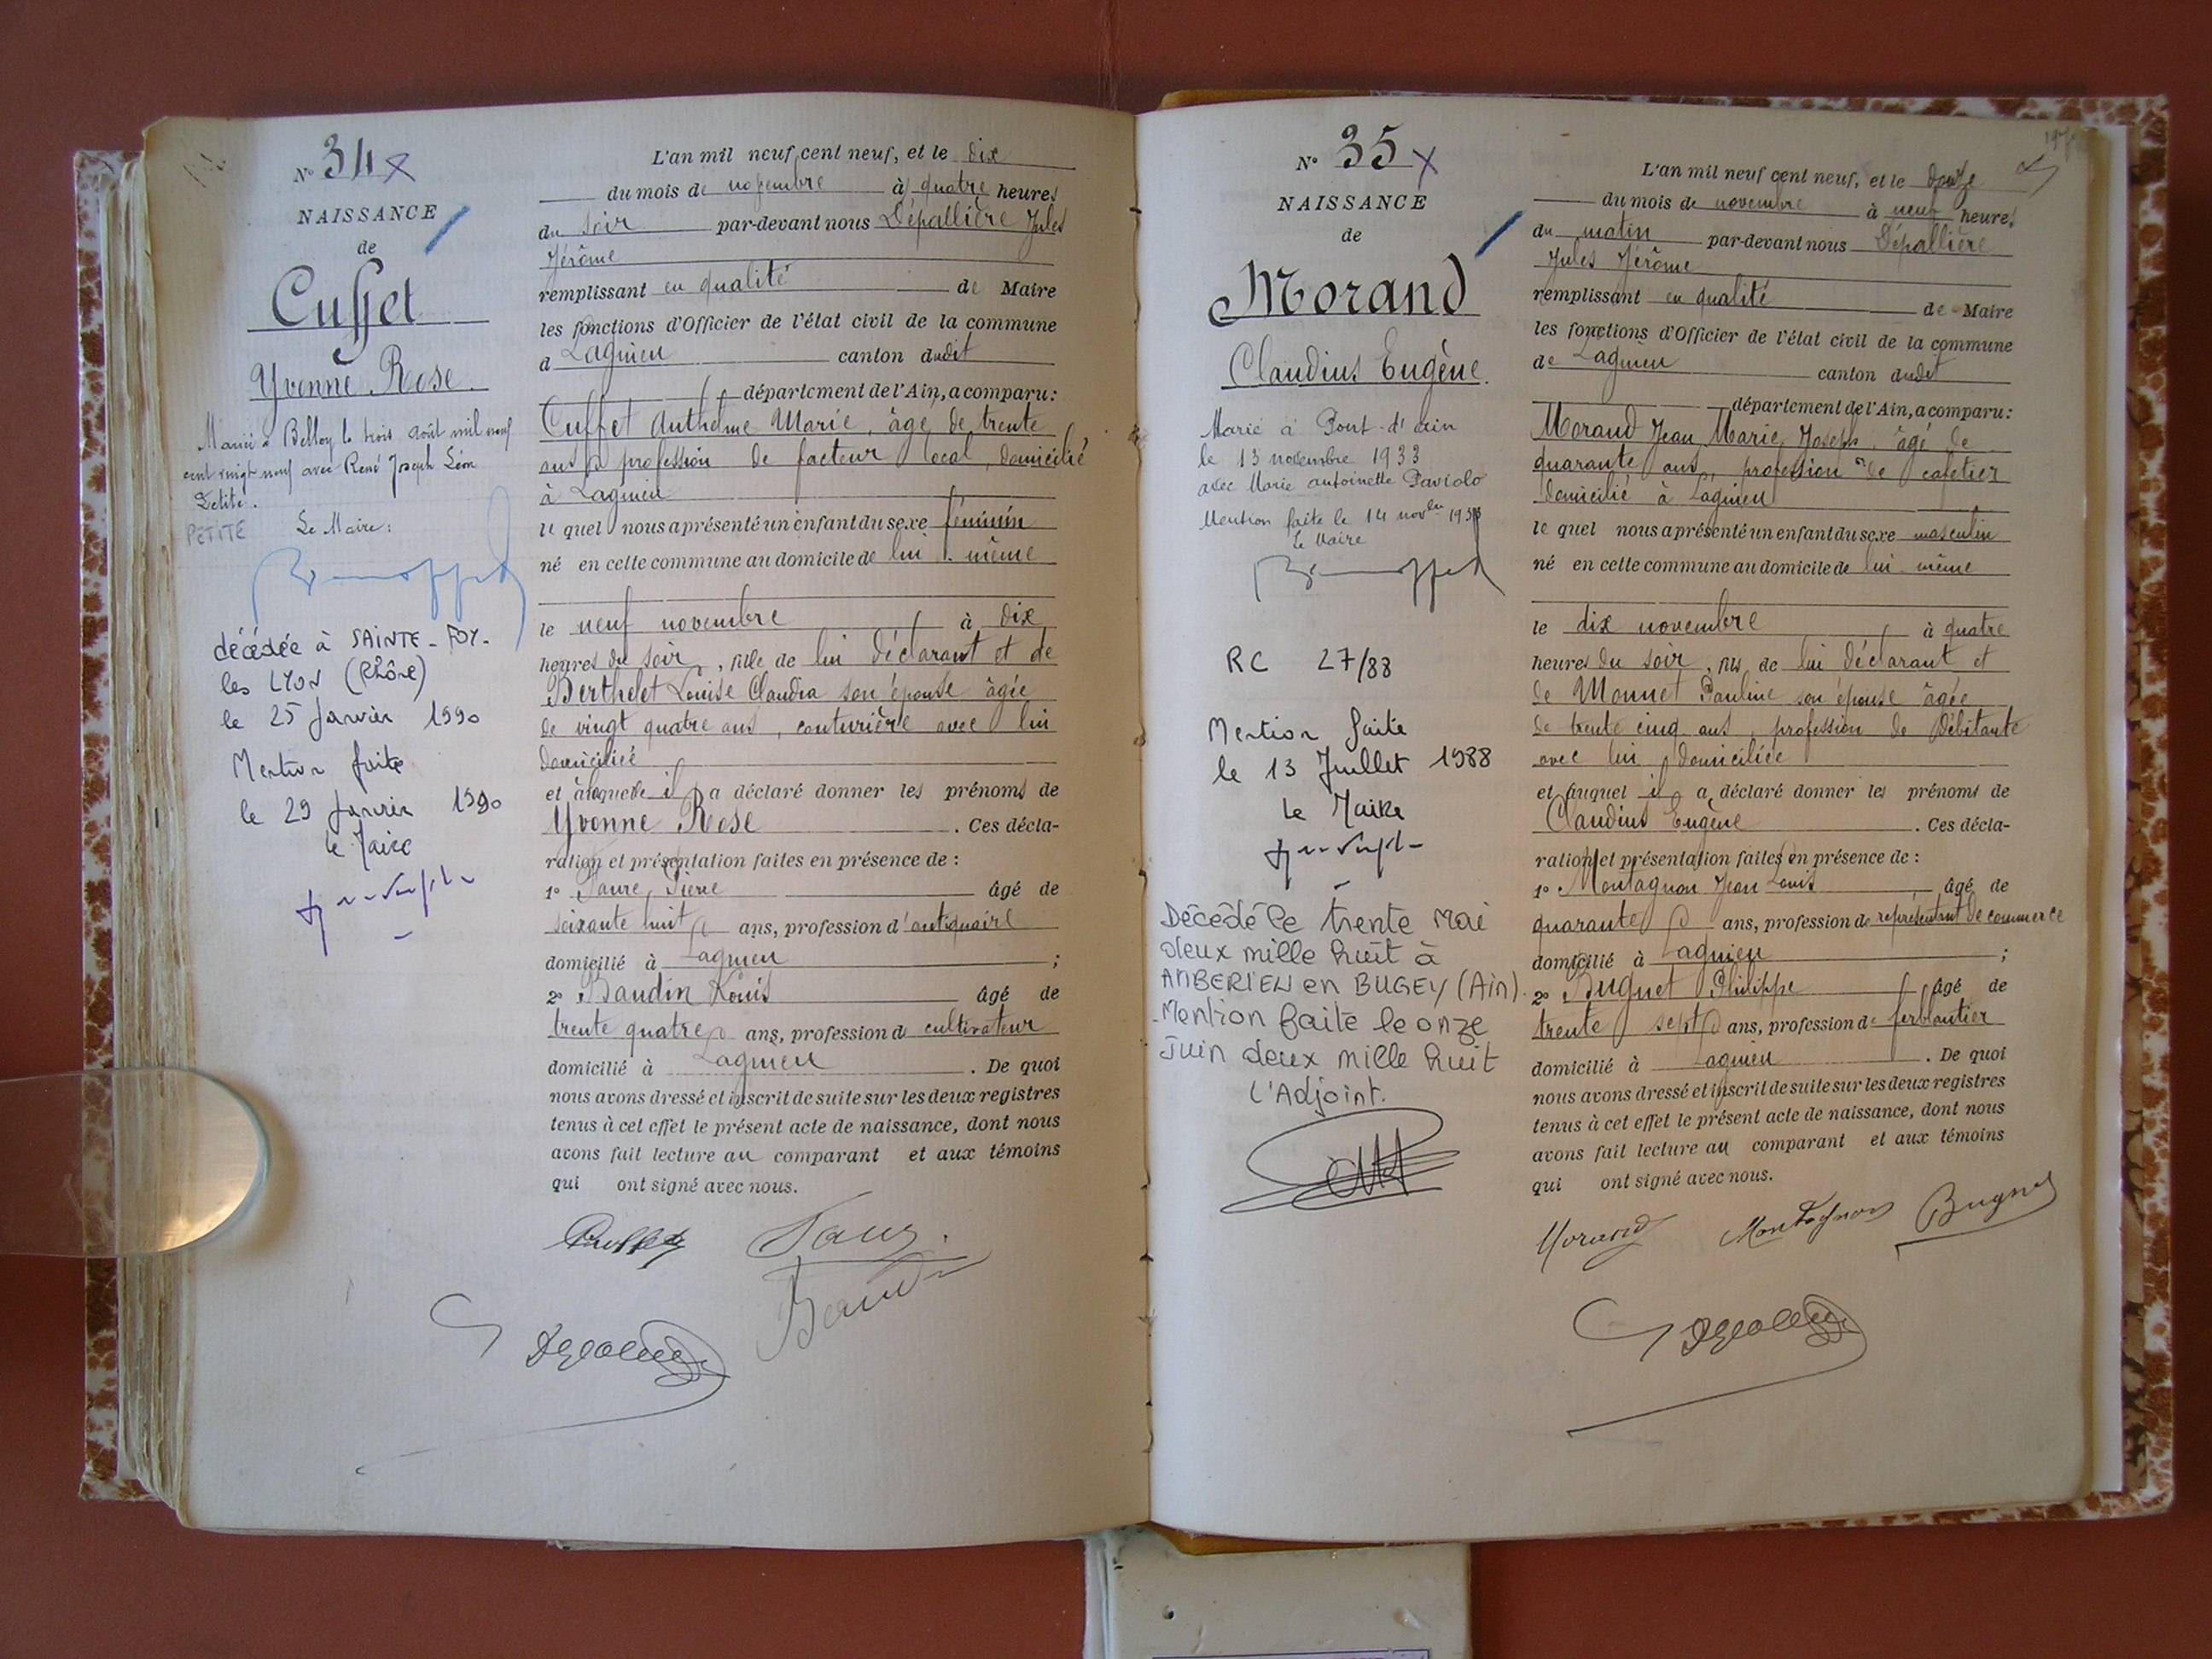 N° 34 X
NAISSANCE
de
Cuffet
Yvonne Rose.
Mariée à Belley le trois août mil neuf
cent vingt neuf avec René Joseph Léon
Petite.
PETITE Le Maire :
décédée à SAINTE-FOY-
les LYON (Rhône)
le 25 Janvier 1990
Mention faite
le 29 Janvier 1990
le Maire
L'an mil neuf cent neuf, et le dix
du mois de novembre à quatre heures
du soir par-devant nous Dépallière Jules
Jérôme
remplissant en qualité de Maire
les fonctions d'Officier de l'état civil de la commune
d Lagnieu canton dudit
département de l'Ain, a comparu :
Cuffet Anthelme Marie, âgé de trente
ans profession de facteur local, domicilié
à Lagnieu
le quel nous a présenté un enfant du sexe féminin
né en cette commune au domicile de lui-même
le neuf novembre à dix
heures du soir, fille de lui déclarant et de
Berthelet Louise Claudia son épouse âgée
de vingt quatre ans, couturière avec lui
domiciliée
et à laquelle il a déclaré donner les prénoms de
Yvonne Rose . Ces décla-
ration et présentation faites en présence de :
1° Faure Pierre âgé de
soixante huit ans, profession d'antiquaire
domicilié à Lagnieu ;
2° Baudin Louis âgé de
trente quatre ans, profession de cultivateur
domicilié à Lagnieu . De quoi
nous avons dressé et inscrit de suite sur les deux registres
tenus à cet effet le présent acte de naissance, dont nous
avons fait lecture au comparant et aux témoins
qui ont signé avec nous.
Cuffet Faure
Baudin
N° 35 X
NAISSANCE
de
Morand
Claudius Eugène.
Marié à Pont-d'Ain
le 13 novembre 1933
avec Marie Antoinette Paviolo
Mention faite le 14 novbre 1933
Le Maire
RC 27/88
Mention faite
le 13 Juillet 1988
Le Maire
Décédé le trente mai
deux mille huit à
AMBERIEU en BUGEY (Ain).
Mention faite le onze
Juin deux mille huit
L'Adjoint.
L'an mil neuf cent neuf, et le douze
du mois de novembre à neuf heures
du matin par-devant nous Dépallière
Jules Jérôme
remplissant en qualité de Maire
les fonctions d'Officier de l'état civil de la commune
de Lagnieu canton dudit
département de l'Ain, a comparu :
Morand Jean Marie Joseph, âgé de
quarante ans, profession de cafetier
domicilié à Lagnieu
le quel nous a présenté un enfant du sexe masculin
né en cette commune au domicile de lui-même
le dix novembre à quatre
heures du soir, fils de lui déclarant et
de Monnet Pauline son épouse âgée
de trente cinq ans, profession de débitante
avec lui domiciliée
et auquel il a déclaré donner les prénoms de
Claudius Eugène . Ces décla-
ration et présentation faites en présence de :
1° Montagnon Jean Louis âgé de
quarante ans, profession de représentant de commerce
domicilié à Lagnieu ;
2° Buguet Philippe âgé de
trente sept ans, profession de ferblantier
domicilié à Lagnieu . De quoi
nous avons dressé et inscrit de suite sur les deux registres
tenus à cet effet le présent acte de naissance, dont nous
avons fait lecture au comparant et aux témoins
qui ont signé avec nous.
Morand Montagnon Buguet